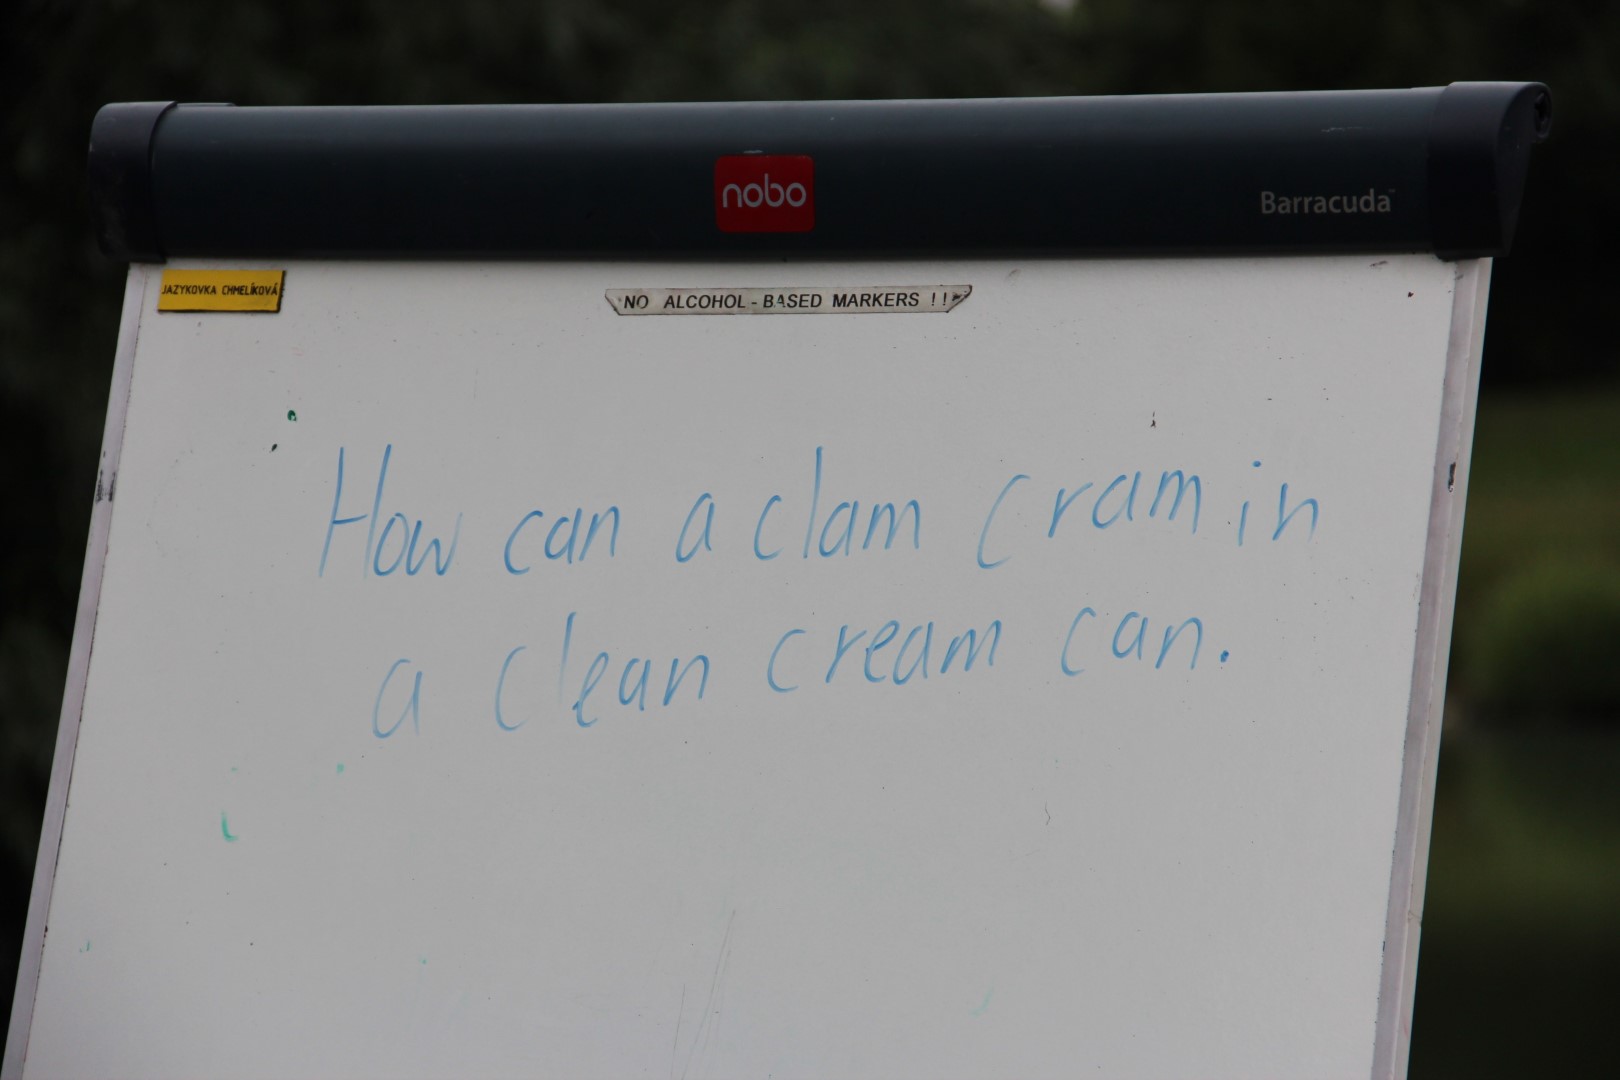 nobo
Barracuda™
JAZYKOVKA CHMELÍKOVÁ
NO ALCOHOL - BASED MARKERS !!
How can a clam cram in
a clean cream can.